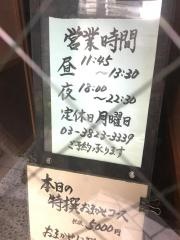 営業時間
昼 11:45
～13:30
夜 18:00
～22:30
定休日 月曜日
03-3823-3339
ご予約承ります
本日の
特撰おまかせコース
5000円
おまかせ